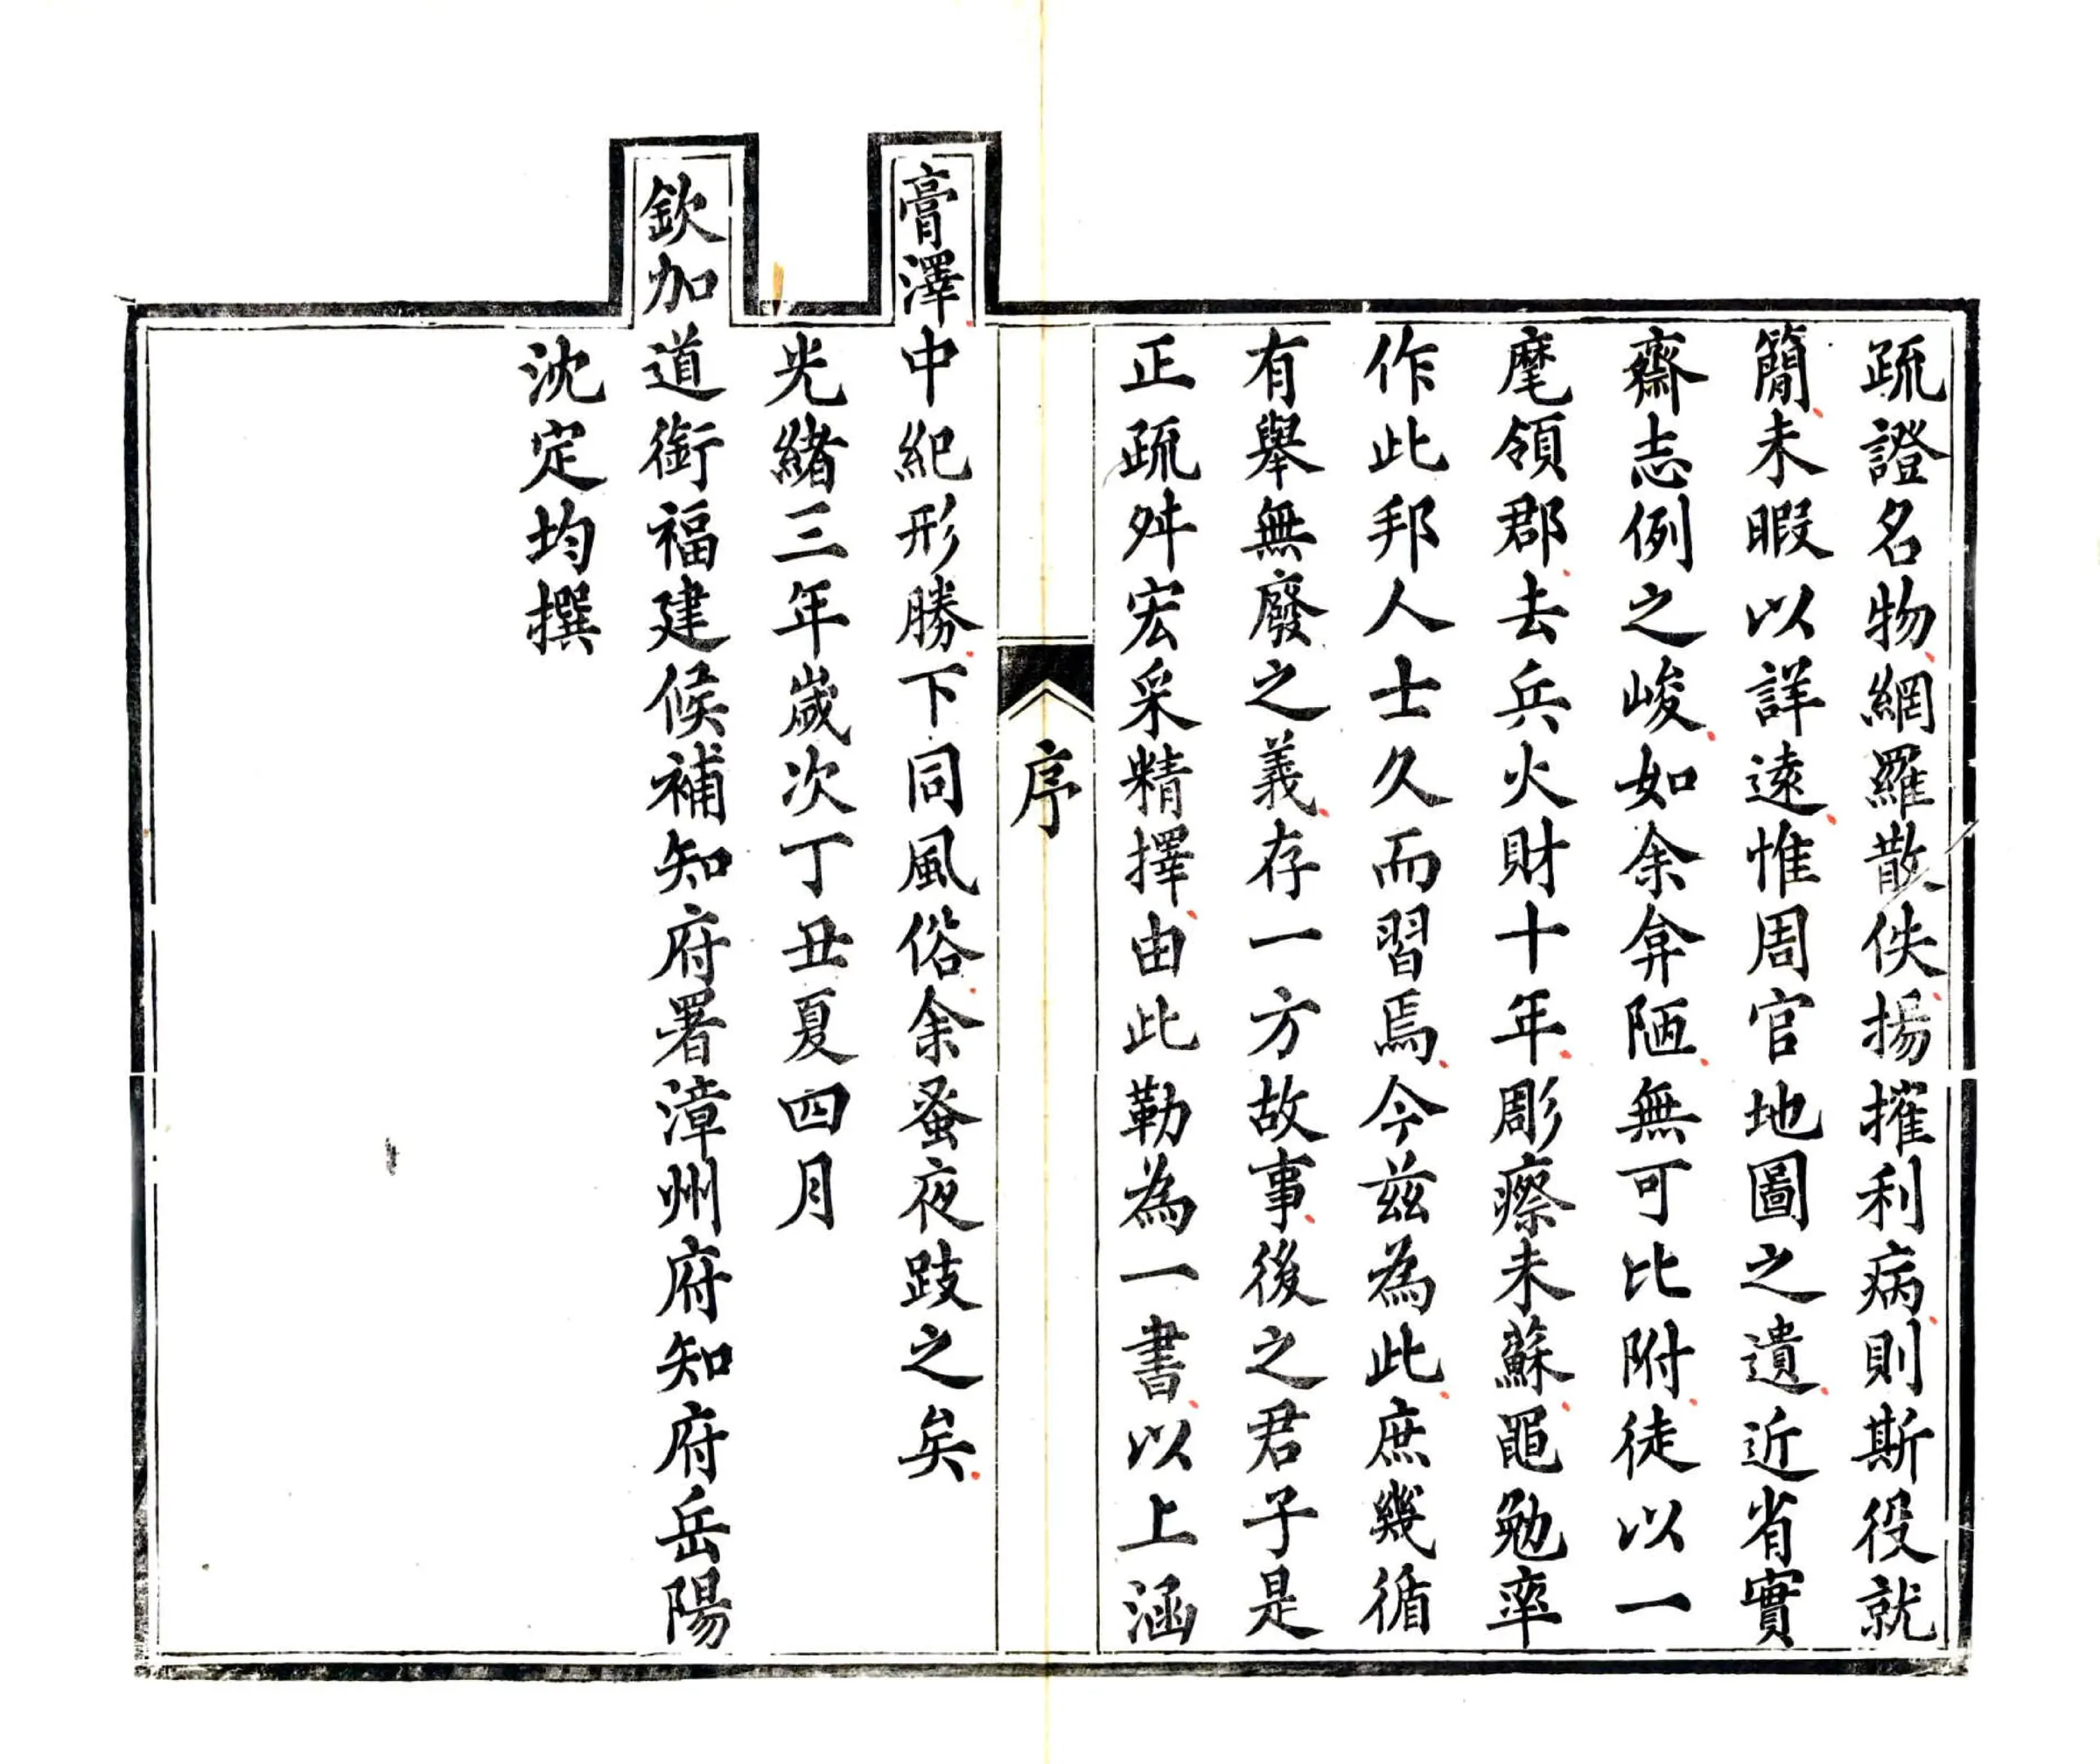 疏證名物網羅散佚揚搉利病則斯役就
簡未暇以詳遠惟周官地圖之遺近省實
齋志例之峻如余弇陋無可比附徒以一
麾領郡去兵火財十年彫瘵未蘇黽勉率
作此邦人士久而習焉今茲為此庶幾循
有舉無廢之義存一方故事後之君子是
正疏舛宏采精擇由此勒為一書以上涵
序
膏澤中紀形勝下同風俗余蚤夜跂之矣
光緒三年歲次丁丑夏四月
欽加道銜福建候補知府署漳州府知府岳陽
沈定均撰